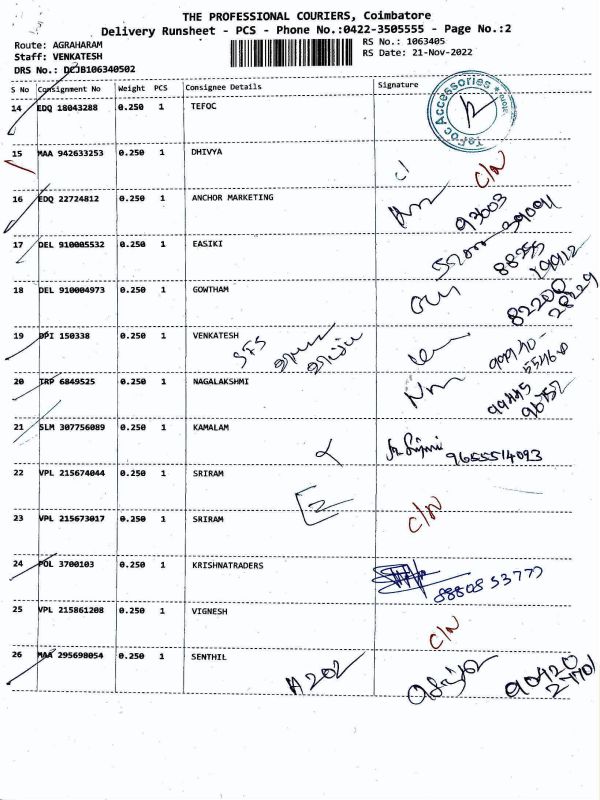 THE PROFESSIONAL COURIERS, Coimbatore
Delivery Runsheet - PCS - Phone No.:0422-3505555 - Page No.:2
Route: AGRAHARAM
RS No.: 1063405
Staff: VENKATESH
RS Date: 21-Nov-2022
DRS No.: DCJB106340502
S No Consignment No Weight PCS Consignee Details Signature
14 EDQ 18043288 0.250 1 TEFOC
TeFoc Accessories
15 MAA 942633253 0.250 1 DHIVYA C/N
16 EDQ 22724812 0.250 1 ANCHOR MARKETING 93603
39091
17 DEL 910005532 0.250 1 EASIKI 88755
19912
18 DEL 910004973 0.250 1 GOWTHAM 82200
28229
19 DPI 150338 0.250 1 VENKATESH SFS
20 TRP 6849525 0.250 1 NAGALAKSHMI 99445
96752
21 SLM 307756089 0.250 1 KAMALAM 9655514093
22 VPL 215674044 0.250 1 SRIRAM
23 VPL 215673017 0.250 1 SRIRAM C/N
24 POL 3700103 0.250 1 KRISHNATRADERS 88808 53777
25 VPL 215861208 0.250 1 VIGNESH C/N
26 MAA 295698054 0.250 1 SENTHIL A 202 90420
27701